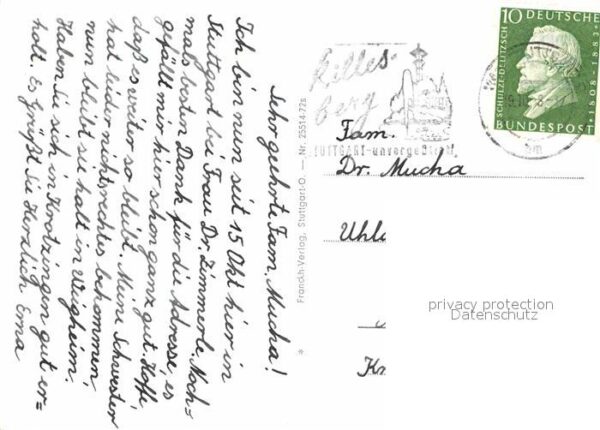 Sehr geehrte Fam. Mucha!
Ich bin nun seit 15 Okt hier in
Stuttgart bei Frau Dr. Zimmerle. Noch-
mals besten Dank für die Adresse, es
gefällt mir hier schon ganz gut. Hoffe,
daß es weiter so bleibt. Meine Schwester
hat leider nichts rechtes bekommen,
nun bleibt sie halt in Weigheim.
Haben Sie sich in Krotzingen gut er=
holt. Es Grüßt Sie Herzlich Erna
* Franckh-Verlag, Stuttgart-O. — Nr. 25514-72s
Killes-
berg
STUTTGART
10 DEUTSCHE
SCHULZE-DELITZSCH
1808-1883
BUNDESPOST
Fam.
Dr. Mucha
Uhl
Kn
privacy protection
Datenschutz